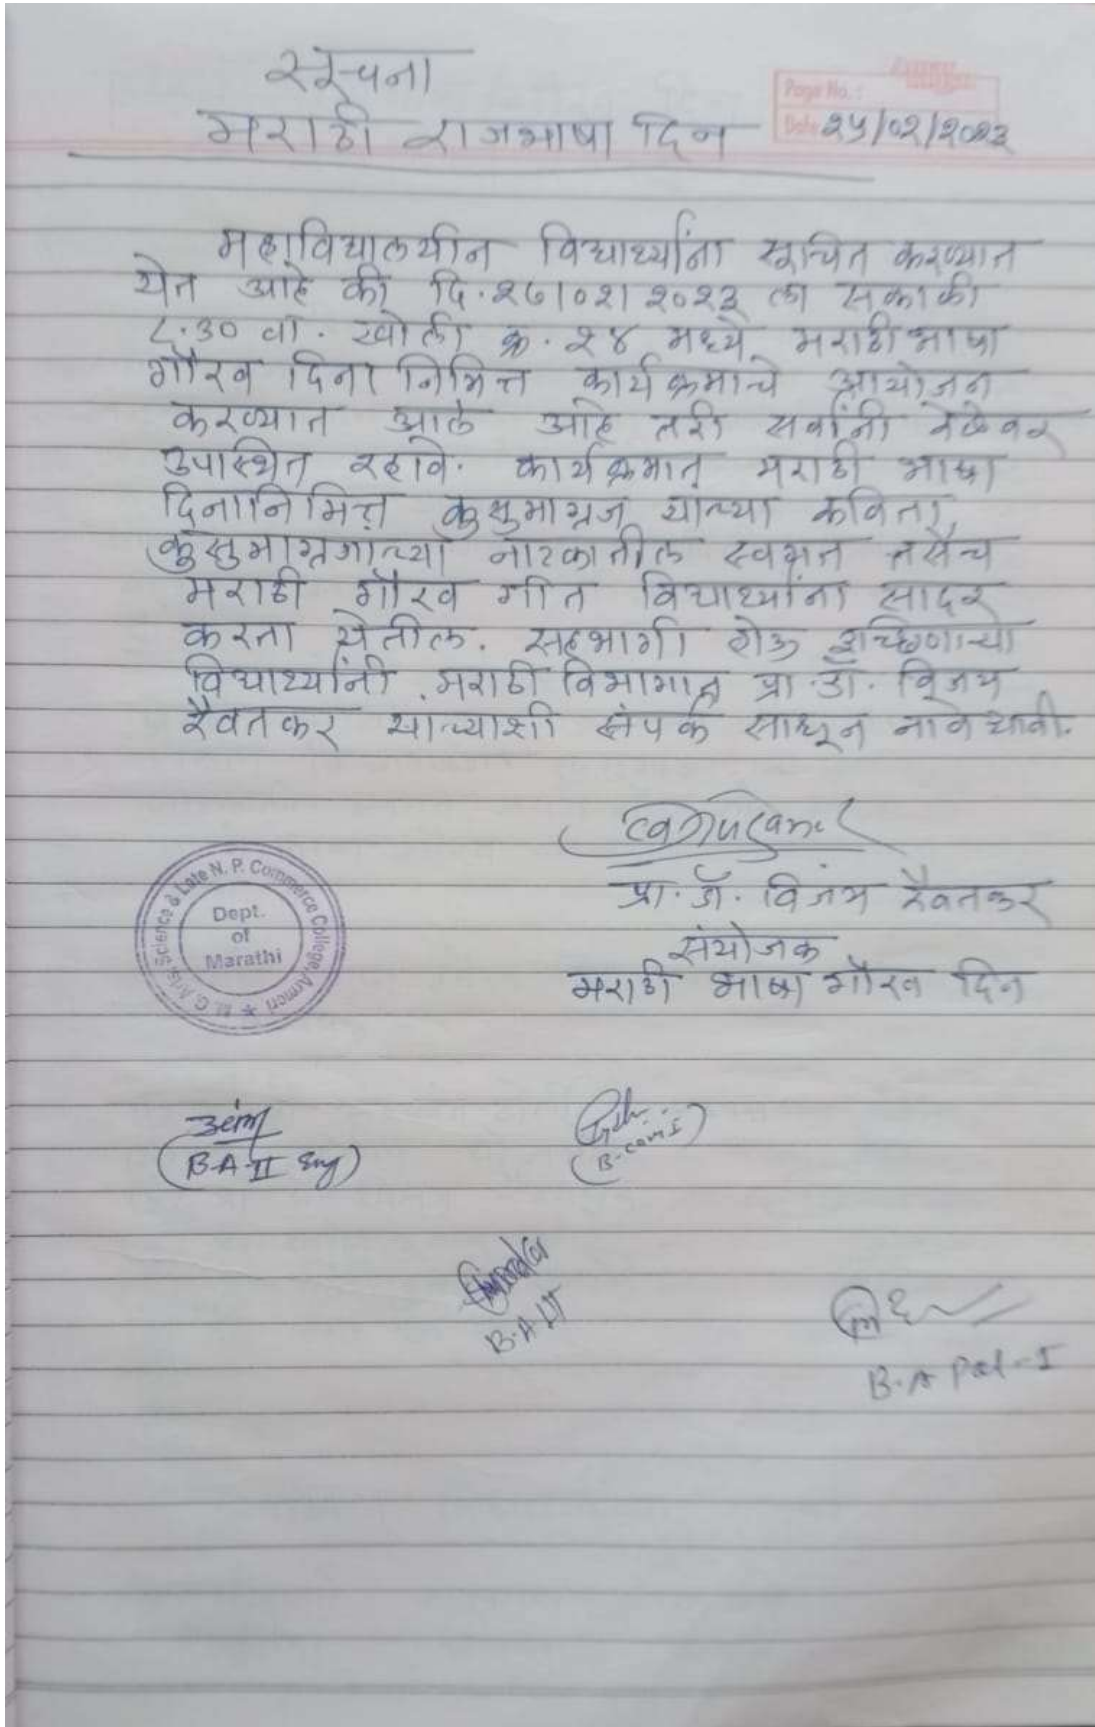 सूचना
Page No.:
मराठी राजभाषा दिन
Date २५/०२/२०२३
महाविद्यालयीन विद्यार्थ्यांना सूचित करण्यात
येत आहे की दि.२७/०२/२०२३ ला सकाळी
८.३० वा. खोली क्र. २४ मध्ये मराठी भाषा
गौरव दिना निमित्त कार्यक्रमाचे आयोजन
करण्यात आले आहे तरी सर्वांनी वेळेवर
उपस्थित रहावे. कार्यक्रमात मराठी भाषा
दिनानिमित्त कुसुमाग्रज यांच्या कविता,
कुसुमाग्रजांच्या नाटकातील स्वगत तसेच
मराठी गौरव गीत विद्यार्थ्यांना सादर
करता येतील. सहभागी होऊ इच्छिणाऱ्या
विद्यार्थ्यांनी मराठी विभागात प्रा.डॉ. विजय
रैवतकर यांच्याशी संपर्क साधून नावे द्यावी.
प्रा. डॉ. विजय रैवतकर
संयोजक
मराठी भाषा गौरव दिन
M. G. Arts, Science & Late N. P. Commerce College, Armori
Dept.
of
Marathi
(B.A-II Eng)
(B.com I)
B.A